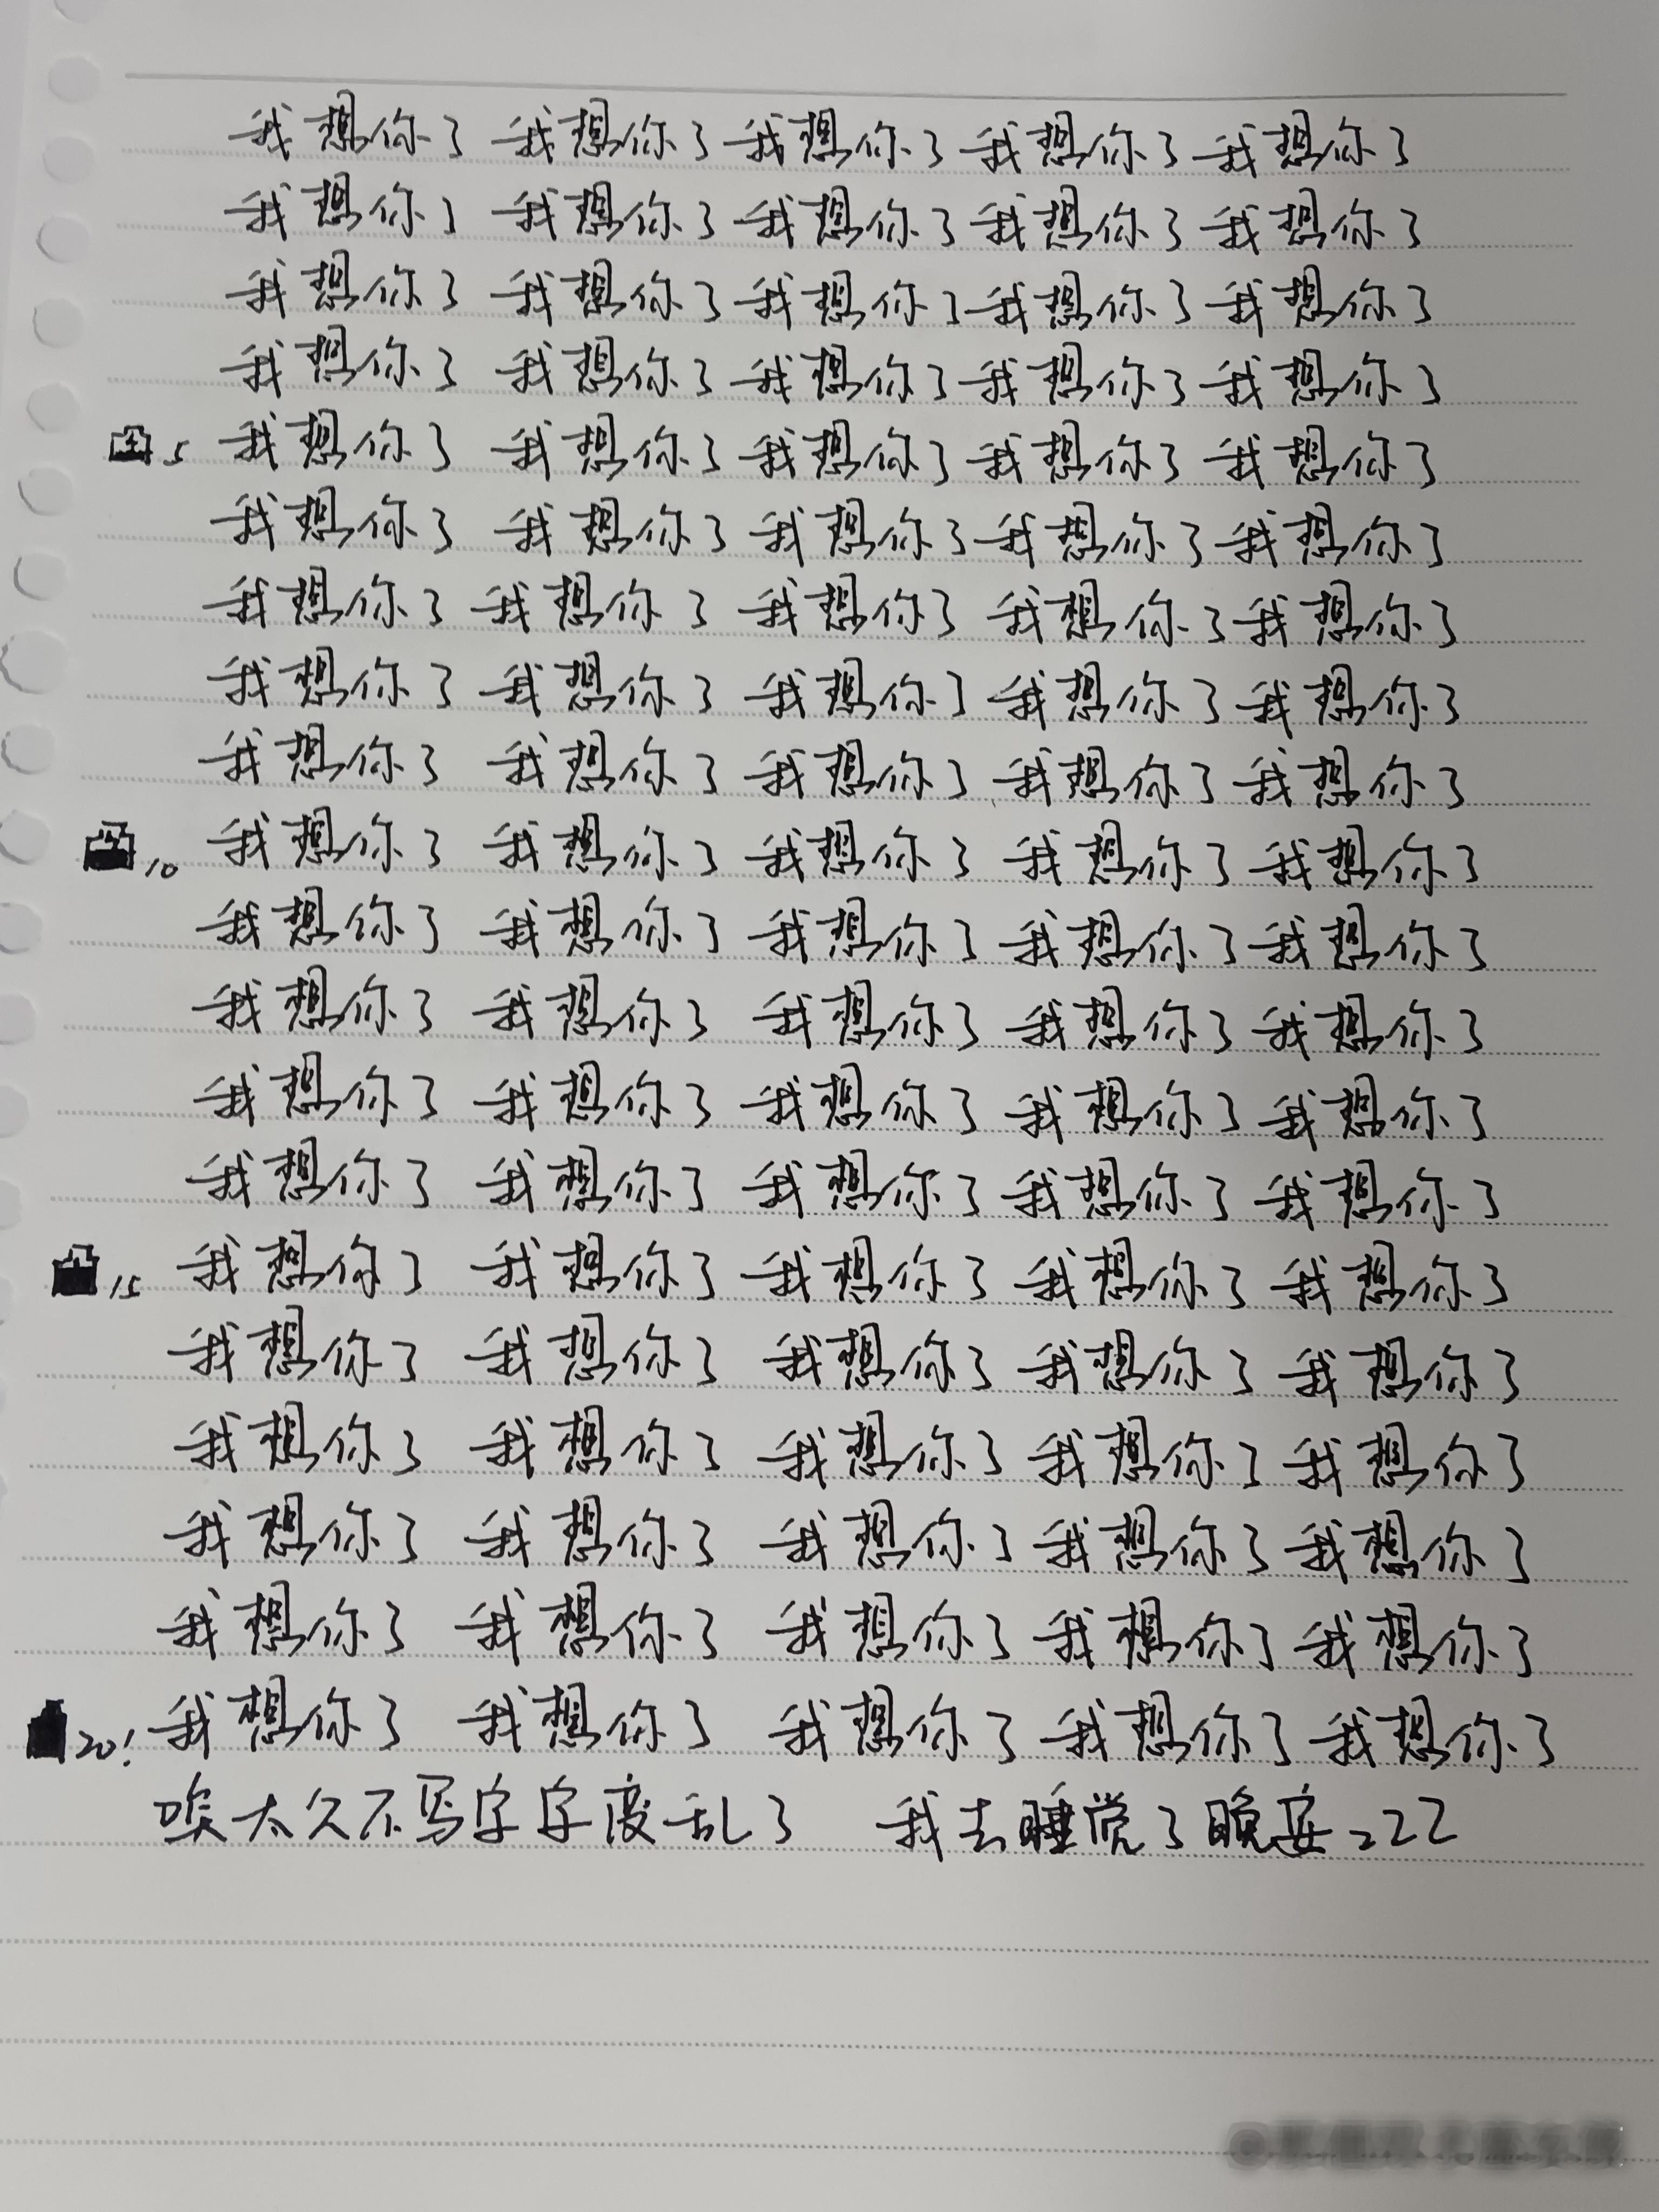 我想你了 我想你了 我想你了 我想你了 我想你了
我想你了 我想你了 我想你了 我想你了 我想你了
我想你了 我想你了 我想你了 我想你了 我想你了
我想你了 我想你了 我想你了 我想你了 我想你了
5 我想你了 我想你了 我想你了 我想你了 我想你了
我想你了 我想你了 我想你了 我想你了 我想你了
我想你了 我想你了 我想你了 我想你了 我想你了
我想你了 我想你了 我想你了 我想你了 我想你了
我想你了 我想你了 我想你了 我想你了 我想你了
10 我想你了 我想你了 我想你了 我想你了 我想你了
我想你了 我想你了 我想你了 我想你了 我想你了
我想你了 我想你了 我想你了 我想你了 我想你了
我想你了 我想你了 我想你了 我想你了 我想你了
我想你了 我想你了 我想你了 我想你了 我想你了
15 我想你了 我想你了 我想你了 我想你了 我想你了
我想你了 我想你了 我想你了 我想你了 我想你了
我想你了 我想你了 我想你了 我想你了 我想你了
我想你了 我想你了 我想你了 我想你了 我想你了
我想你了 我想你了 我想你了 我想你了 我想你了
20! 我想你了 我想你了 我想你了 我想你了 我想你了
唉太久不写字字变乱了 我去睡觉了晚安zzZ